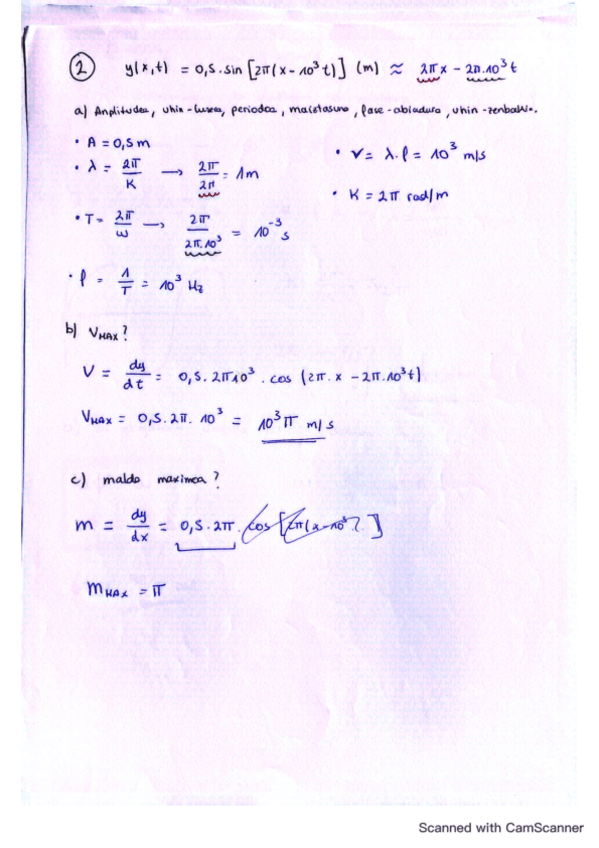 ② y(x,t) = 0,5·sin [2π(x-10³t)] (m) ≈ 2πx - 2π·10³t
a) Anplitudea, uhin-luzea, periodoa, maiztasuna, fase-abiadura, uhin-zenbakia.
• A = 0,5 m
• λ = 2π/K → 2π/2π = 1m
• v = λ·f = 10³ m/s
• K = 2π rad/m
• T = 2π/ω → 2π/2π·10³ = 10⁻³ s
• f = 1/T = 10³ Hz
b) VMAX?
V = dy/dt = 0,5·2π10³·cos (2π·x - 2π·10³t)
VMAX = 0,5·2π·10³ = 10³π m/s
c) malda maximoa?
m = dy/dx = 0,5·2π·cos [2π(x-10³ ]
mMAX = π
Scanned with CamScanner